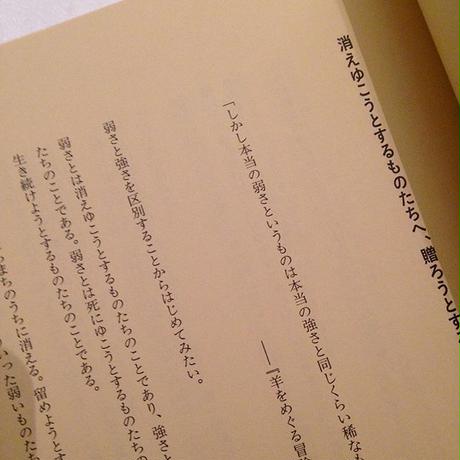 消えゆこうとするものたちへ、贈ろうとす
「しかし本当の弱さというものは本当の強さと同じくらい稀なも
――『羊をめぐる冒険
弱さと強さを区別することからはじめてみたい。
弱さとは消えゆこうとするものたちのことであり、強さと
たちのことである。弱さとは死にゆこうとするものたちの
生き続けようとするものたちのことである。
まちのうちに消える。留めようとす
いった弱いものたち